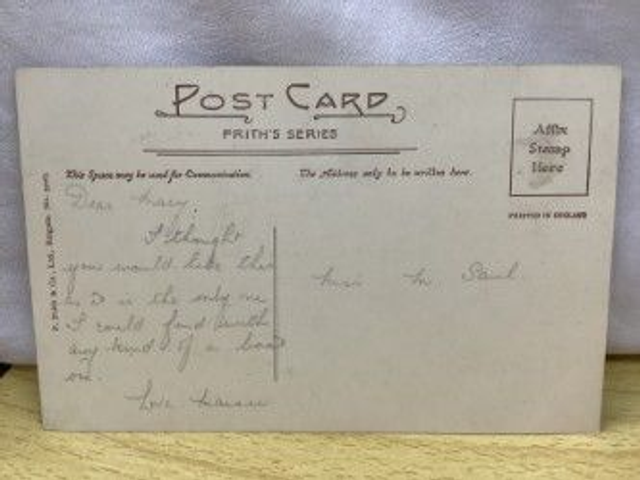 POST CARD
FRITH'S SERIES
This Space may be used for Communication.
The Address only to be written here.
Affix
Stamp
Here
PRINTED IN ENGLAND
F. Frith & Co., Ltd., Reigate. No.
Dear Mary,
I thought
you would like this
as it is the only one
I could find with
any kind of a boat
on.
Love
Miss M Saul